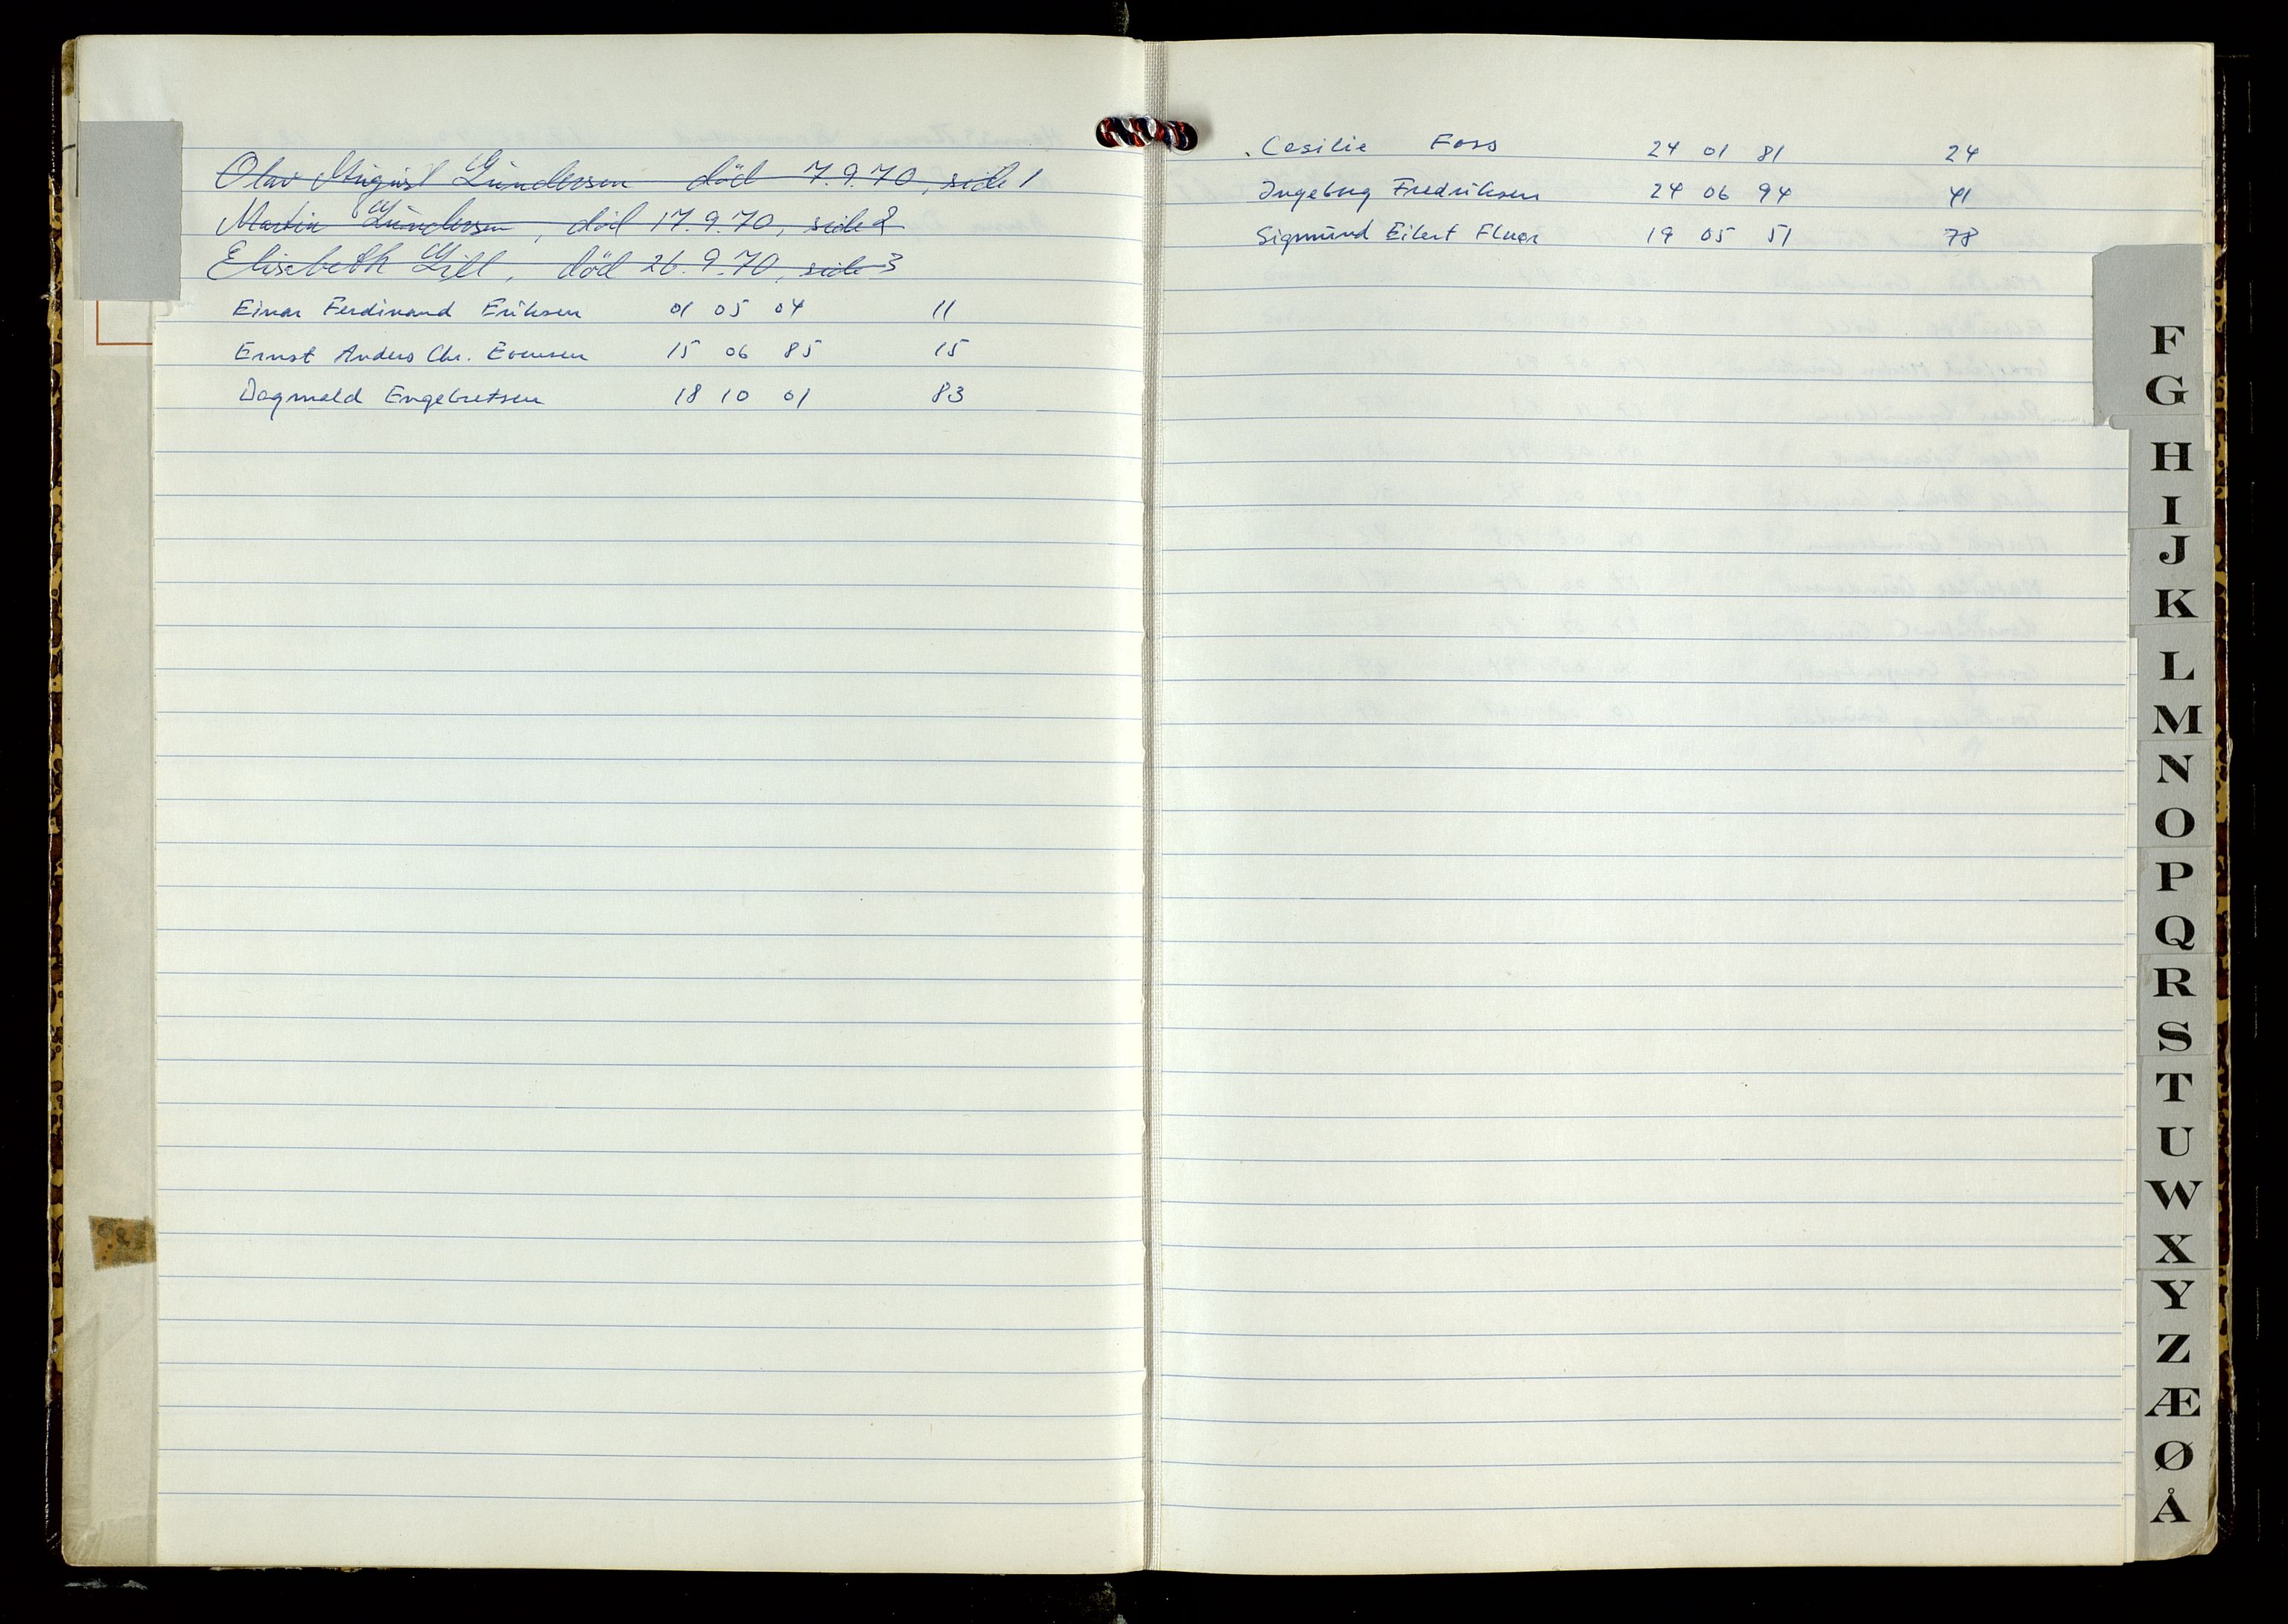 Olav August Gundersen død 7.9.70, side 1
Martin Gundersen, død 17.9.70, side 2
Elisebeth Gill, død 26.9.70, side 3
Einar Ferdinand Eriksen 01 05 04 11
Ernst Anders Chr. Evensen 15 06 85 15
Dagmald Engebretsen 18 10 01 83
Cesilie Foss 24 01 81 24
Ingeborg Fredriksen 24 06 94 41
Sigmund Eilert Fluer 19 05 51 78
F
G
H
I
J
K
L
M
N
O
P
Q
R
S
T
U
W
X
Y
Z
Æ
Ø
Å